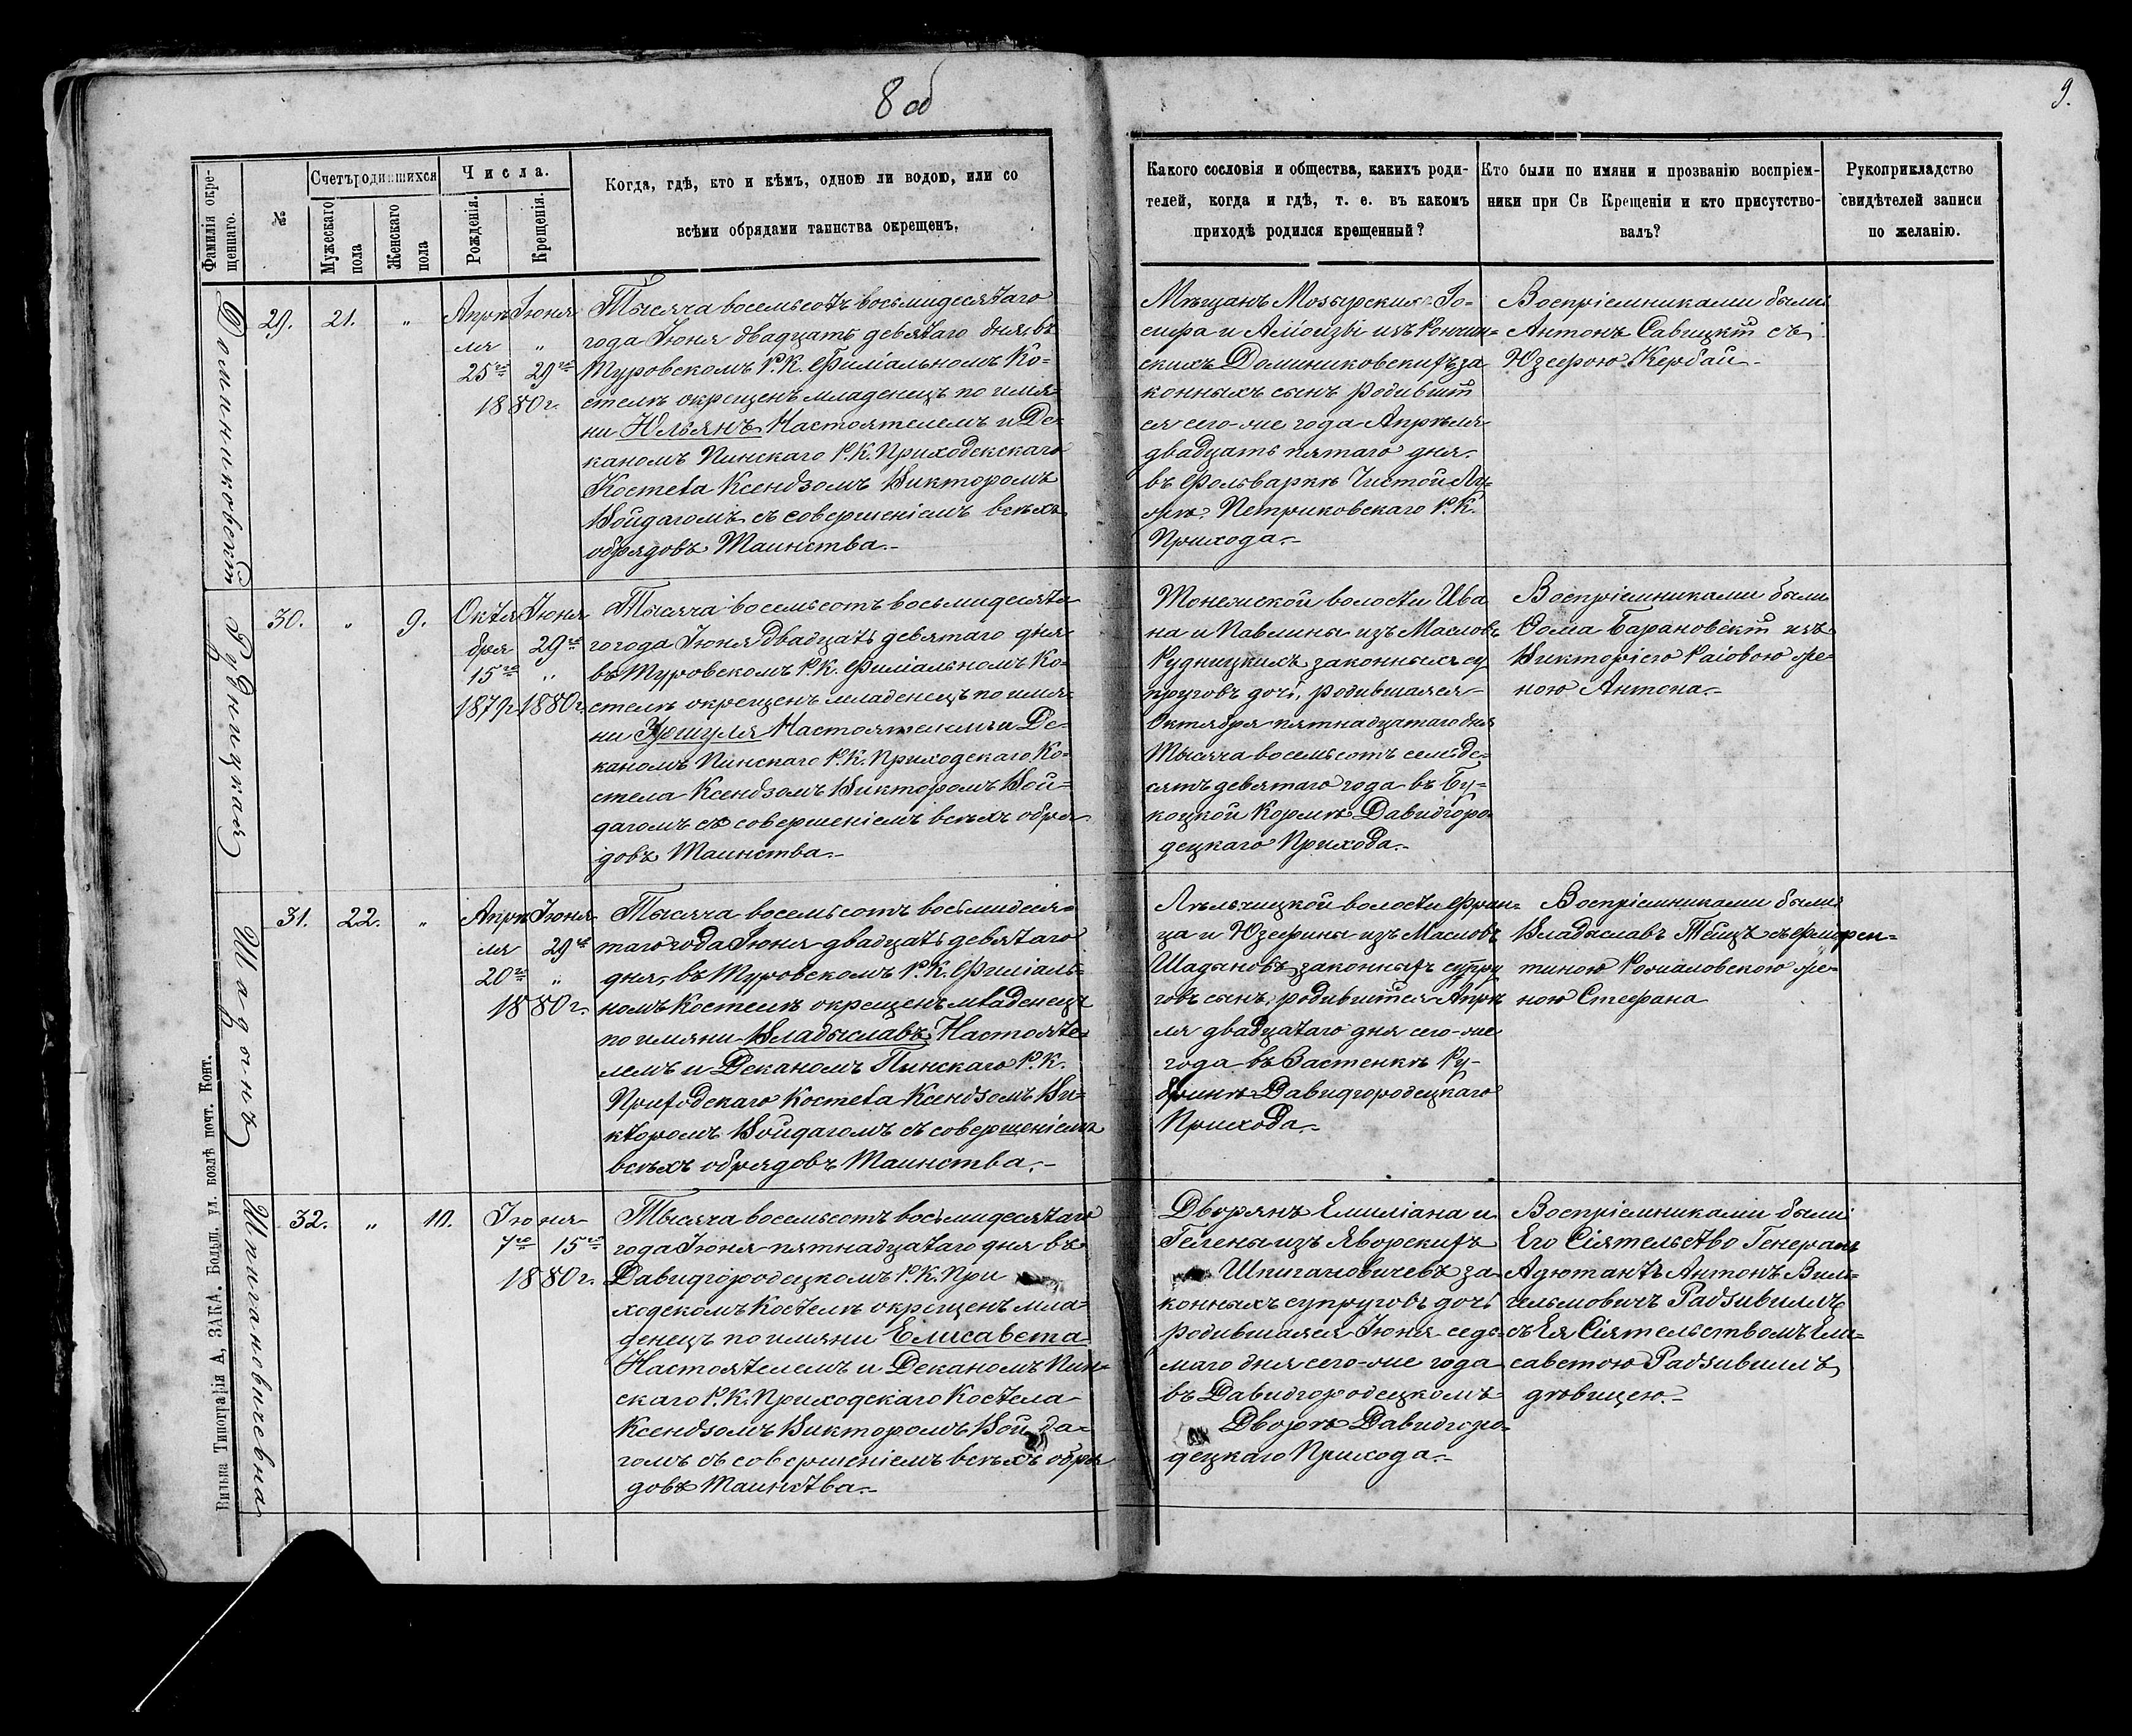 8 об
9.
Фамилія окре-
щеннаго.
№
Счетъ родившихся
Мужескаго
пола
Женскаго
пола
Числа.
Рожденія.
Крещенія.
Когда, гдѣ, кто и кѣмъ, одною ли водою, или со
всѣми обрядами таинства окрещенъ.
Какого сословія и общества, какихъ роди-
телей, когда и гдѣ, т. е. въ какомъ
приходѣ родился крещенный?
Кто были по имяни и прозванію воспріем-
ники при Св Крещеніи и кто присутство-
валъ?
Рукоприкладство
свидѣтелей записи
по желанію.
Доминиковскій
29.
21.
"
Апрѣ Іюня
ля "
25го 29го
1880 г.
Тысяча восемьсотъ восьмидесятаго
года Іюня двадцать девятаго дня въ
Туровскомъ Р. К. Филіальномъ Ко-
стелѣ окрещенъ младенецъ по имя-
ни Юльянъ Настоятелемъ и Де-
каномъ Пинскаго Р. К. Приходскаго
Костела Ксендзомъ Викторомъ
Войдагомъ съ совершеніемъ всѣхъ
обрядовъ Таинства.-
Мѣщанъ Мозырскихъ Іо-
сифа и Алоизы изъ
скихъ Доминиковскихъ за
конныхъ сынъ родивший
ся сего-же года Апрѣля
двадцать пятаго дня
въ Фольваркѣ Чистой Лу-
жѣ. Петриковскаго Р. К.
Прихода.-
Воспріемниками были
Антонъ Савицкій съ
Юзефою Кербай.-
Рудницкой
30.
"
9.
Октя Іюня
бря 29го
15го "
1879 г. 1880 г.
Тысяча восемьсотъ восьмидесята
го года Іюня двадцать девятаго дня
въ Туровскомъ Р. К. Филіальномъ Ко-
стелѣ окрещенъ младенецъ по имя-
ни Уршуля Настоятелемъ и Де-
каномъ Пинскаго Р. К. Приходскаго Ко-
стела Ксендзомъ Викторомъ Вой-
дагомъ съ совершеніемъ всѣхъ обря-
довъ Таинства.-
Тонежской волости Ива
на и Павлины изъ Масловъ
Рудницкихъ законныхъ су
пруговъ дочь, родившаяся
Октября пятнадцатаго дня
Тысяча восемьсотъ семьде-
сятъ девятаго года въ Бу-
коцкой Кормѣ Давидгоро
децкаго Прихода.-
Воспріемниками были
Ѳома Барановскій изъ
Викторіею Раіовою же-
ною Антона.-
Шаданъ
31.
22.
"
Апрѣ Іюня
ля 29го
20го "
1880 г.
Тысяча восемьсотъ восьмидеся-
таго года Іюня двадцать девятаго
дня, въ Туровскомъ Р. К. Филіаль-
номъ Костелѣ окрещенъ младенецъ
по имяни Владыславъ Настояте-
лемъ и Деканомъ Пинскаго Р. К.
Приходскаго Костела Ксендзомъ Ви-
кторомъ Войдагомъ съ совершеніемъ
всѣхъ обрядовъ Таинства.-
Лѣльчицкой волости Фран-
ца и Юзефины изъ Масловъ
Шадановъ законныхъ супру
говъ сынъ, родившійся Апрѣ
ля двадцатаго дня сего-же
года въ Застенкѣ Ру-
Давидгородецкаго
Прихода.-
Воспріемниками были
Владыславъ съ Флорен-
тиною женою Стефана
Шпигановичевна
32.
"
10.
Іюня
7го 15го
1880 г.
Тысяча восемьсотъ восьмидесятаго
года Іюня пятнадцатаго дня въ
Давидгородецкомъ Р. К. При
ходскомъ Костелѣ окрещенъ мла-
денецъ по имяни Елисавета
Настоятелемъ и Деканомъ Пин-
скаго Р. К. Приходскаго Костела
Ксендзомъ Викторомъ Войда-
гомъ съ совершеніемъ всѣхъ обря
довъ Таинства.-
Дворянъ Емиліана и
Гелены изъ Яворскихъ
Шпигановичевъ за
конныхъ супруговъ дочь
родившаяся Іюня седь-
маго дня сего-же года
въ Давидгородецкомъ
Дворѣ Давидгоро-
децкаго Прихода.-
Воспріемниками были
Его Сіятельство Генералъ
Адютантъ Антонъ Виль-
гельмовичъ Радзивиллъ
съ Ея Сіятельствомъ Ели-
саветою Радзивиллъ
дѣвицею.-
Вильна Типографія А, ЗАКА. Больш. ул. возлѣ почт. Конт.